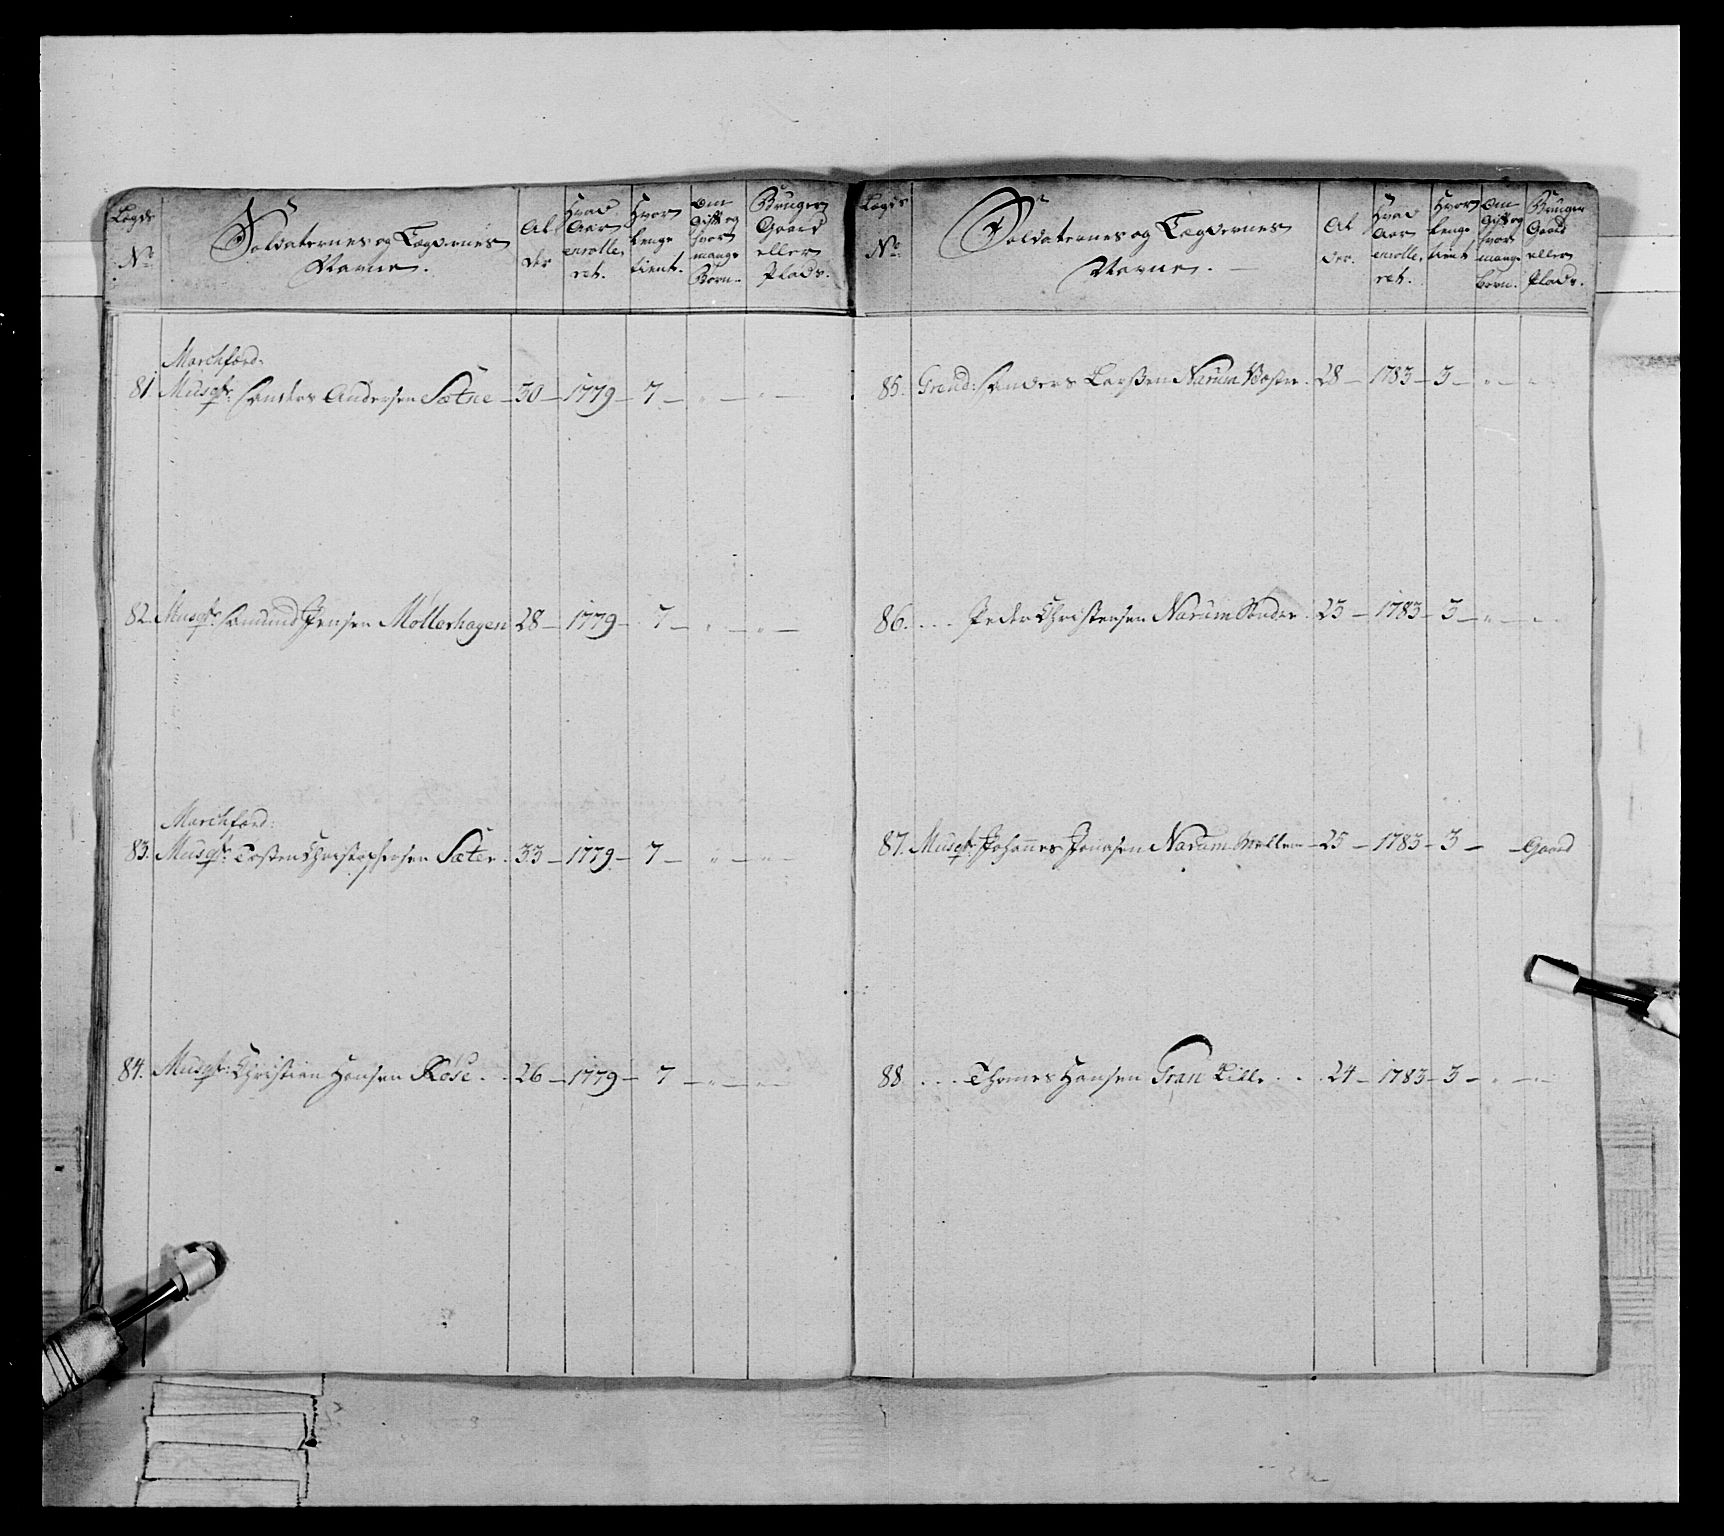 Lægds
No
Soldaternes og Lægdernes
Navne.
Al
der
Hvad
Aar
enrolle,
ret.
Hvor
lenge
tient.
Om
Gift og
hvor
mange
Børn.
Bruger
Gaard
eller
Plads.
Marchfærd:
81. Musqt: Anders Andersen Sætne – 30 – 1779 – 7 – " – " –
82. Musqt: Amund Jensen Møllerhagen 28 – 1779 – 7 – " – " –
Marchfærd:
83. Musqt: Tosten Christophersen Sæter . 33 – 1779 – 7 – " – "
84. Musqt: Christian Hansen Røse . . 26 – 1779 – 7 – " – " –
Lægds
No
Soldaternes og Lægdernes
Navne.
Al
der.
Hvad
Aar
enrolle,
ret.
Hvor
lenge
tient
Om
Gift og
hvor
mange
Børn.
Bruger
Gaard
eller
Plads.
85. Grend: Anders Larssen Narum Vestre . 28 – 1783 – 3 – " – "
86. . . . Peder Christensen Narum Sondre . 23 – 1783 – 3 – " – "
87. Musqt: Johannes Jonasen Narum Mellem – 25 – 1783 – 3 – – Gaard
88 . . . Thomes Hansen Gran Lille . . . 24 – 1783 – 3 – " – "